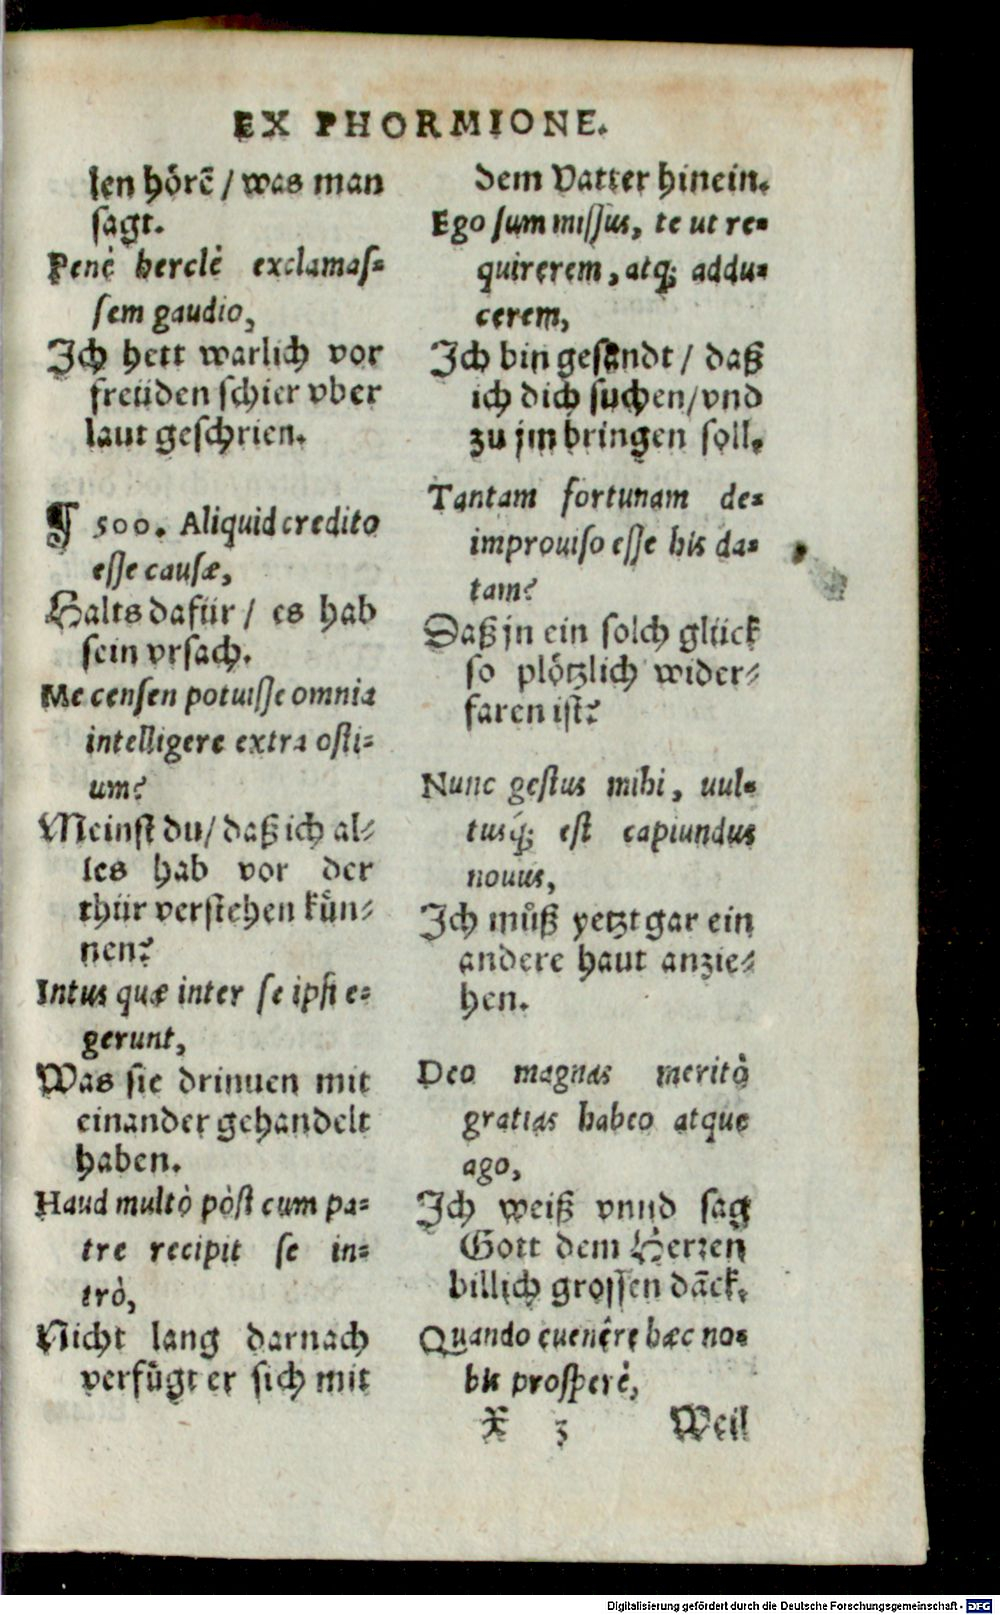 EX PHORMIONE.
len hörẽ / was man
sagt.
Penè herclè exclamas-
sem gaudio,
Ich hett warlich vor
freüden schier vber
laut geschrien.
¶ 500. Aliquid credito
esse causæ,
Halts dafür / es hab
sein vrsach.
Me censen potuisse omnia
intelligere extra osti-
um?
Meinst du / daß ich al-
les hab vor der
thür verstehen kün-
nen?
Intus quæ inter se ipsi e-
gerunt,
Was sie drinnen mit
einander gehandelt
haben.
Haud multò pòst cum pa-
tre recipit se in-
trò,
Nicht lang darnach
verfügt er sich mit
dem Vatter hinein.
Ego sum missus, te ut re-
quirerem, atq; addu-
cerem,
Ich bin gesandt / daß
ich dich suchen / vnd
zu jm bringen soll.
Tantam fortunam de-
improuiso esse his da-
tam?
Daß jn ein solch glück
so plötzlich wider-
faren ist?
Nunc gestus mihi, uul-
tusq́; est capiundus
nouus,
Ich můß yetzt gar ein
andere haut anzie-
hen.
Deo magnas meritò
gratias habeo atque
ago,
Ich weiß vnnd sag
Gott dem Herren
billich grossen dãck.
Quando euenêre hæc no-
bis prosperè,
X 3 Weil
Digitalisierung gefördert durch die Deutsche Forschungsgemeinschaft - DFG